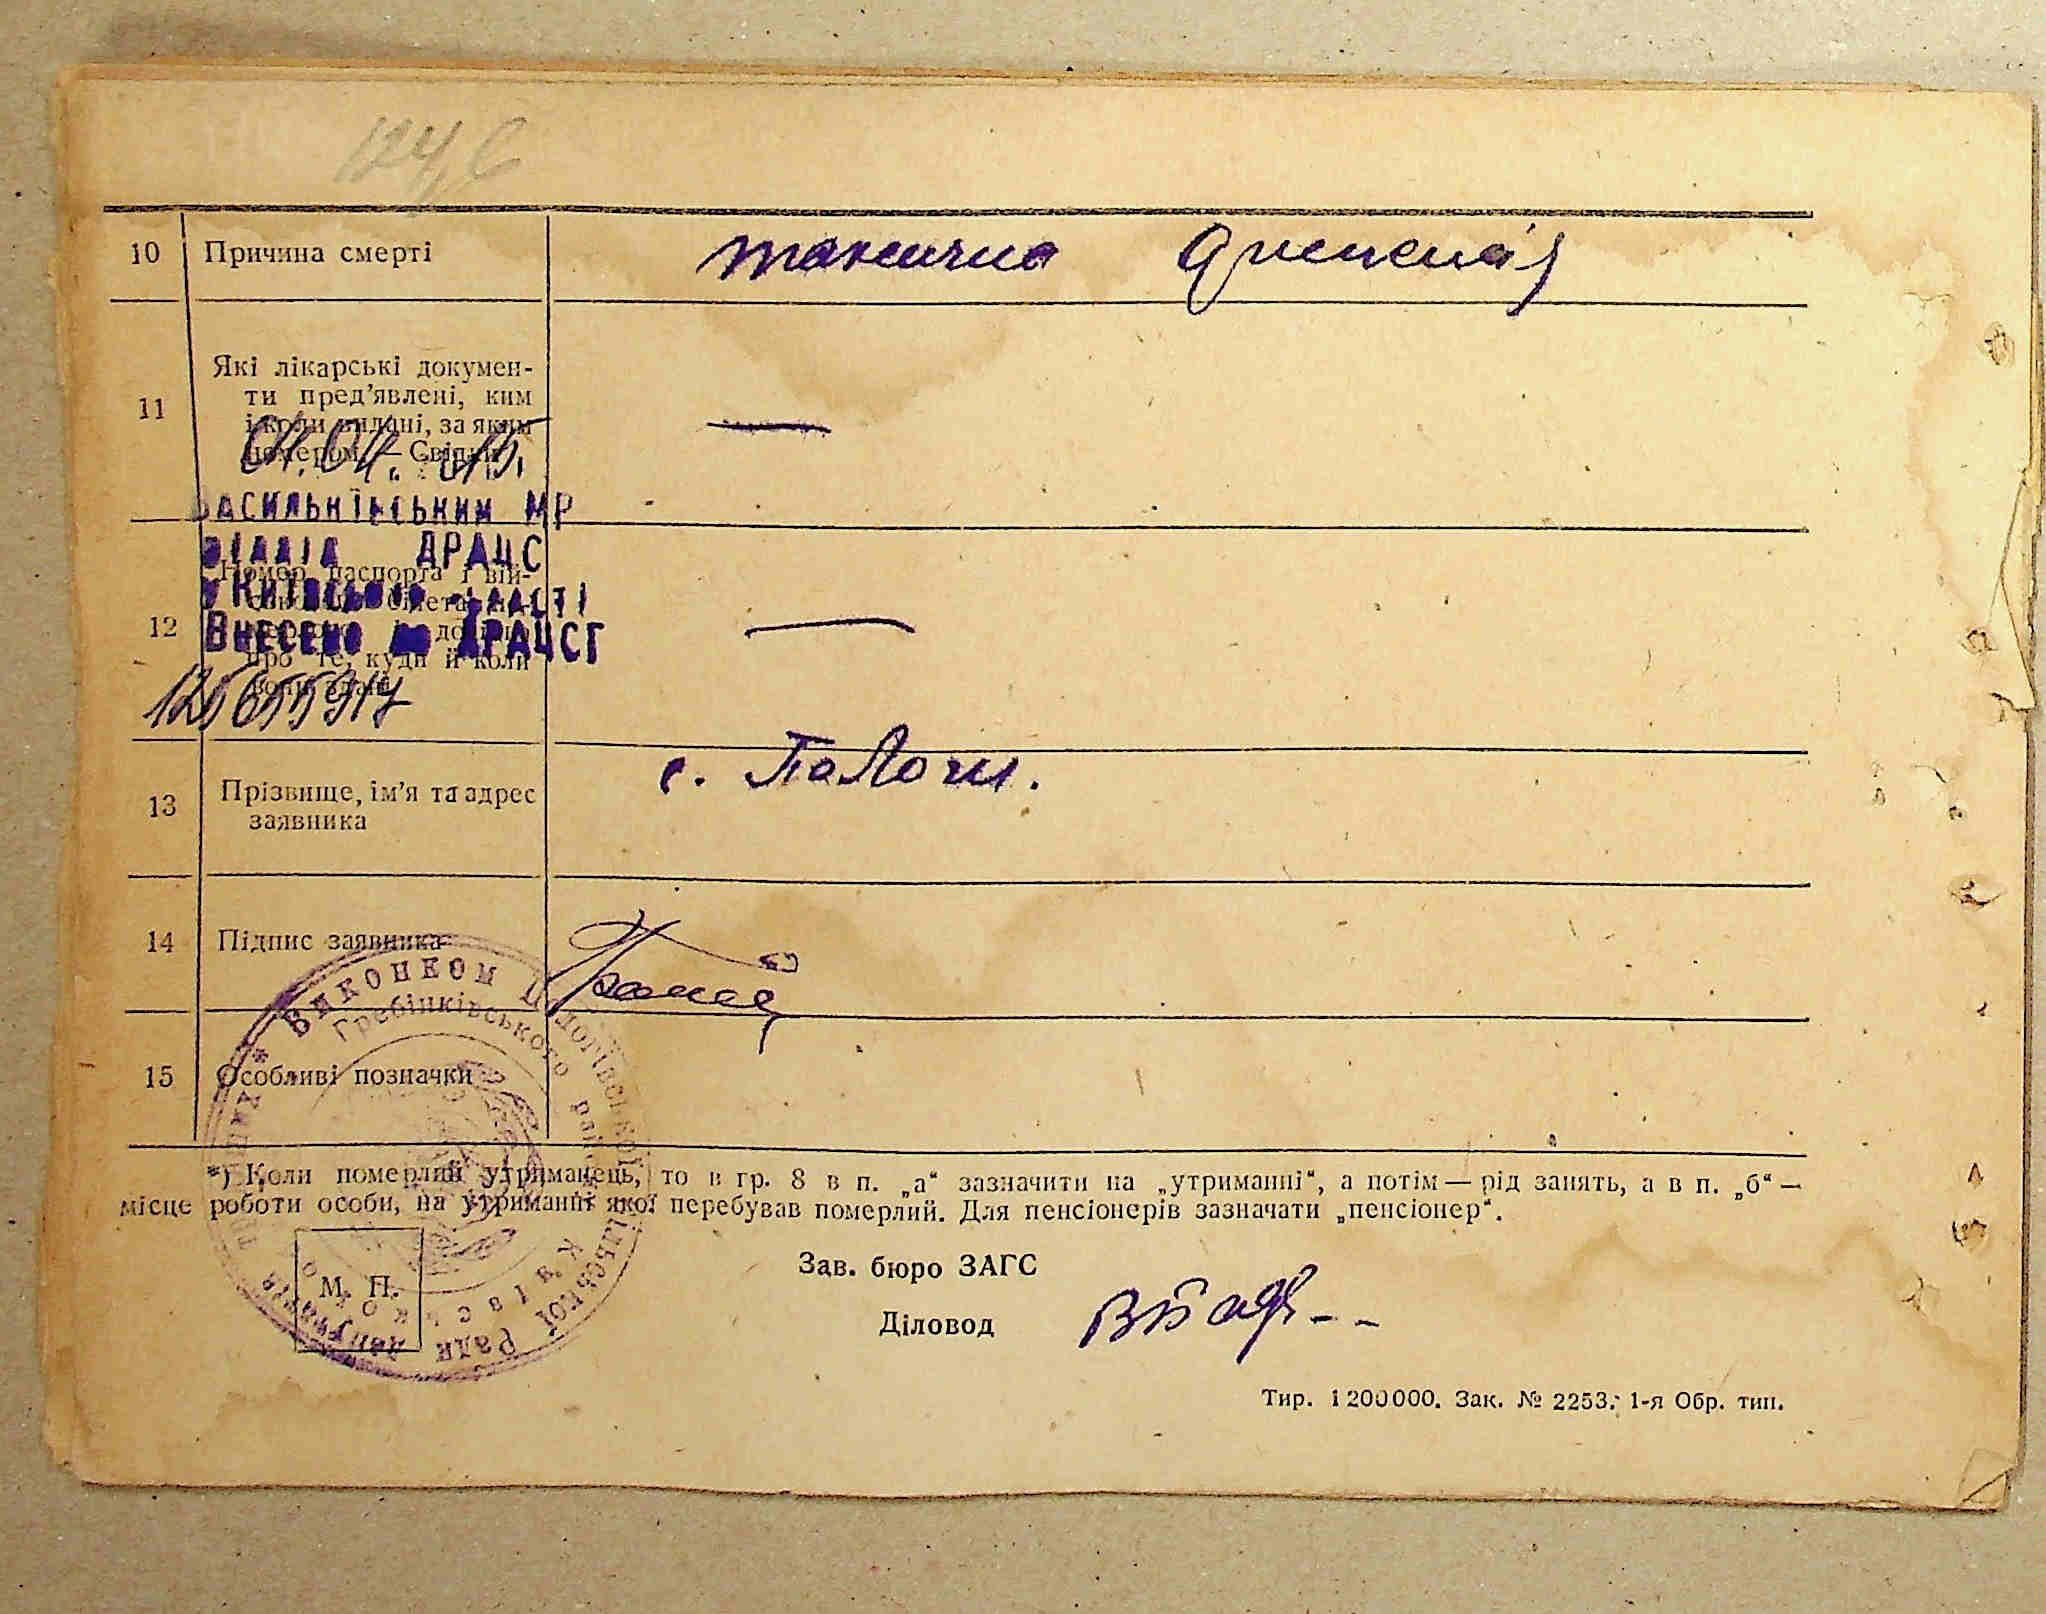 10 Причина смерті токсична диспепсія
11 Які лікарські докумен-
ти пред'явлені, ким
і коли видані, за яким
номером. — Свідки
01.04.
ВАСИЛЬКІВСЬКИМ МР
ВІДДІЛ ДРАЦС
У КИЇВСЬКІЙ ОБЛАСТІ
ВНЕСЕНО ДО ДРАЦСГ
12 Номер паспорта і вій-
про те, куди й коли
13 Прізвище, ім'я та адрес
заявника
с. Пологи.
14 Підпис заявника
15 Особливі позначки
Виконком Пологівської сільської Ради депутатів
Гребінківського району Київської
*) Коли померлий утриманець, то в гр. 8 в п. „а“ зазначити на „утриманні“, а потім — рід занять, а в п. „б“ —
місце роботи особи, на утриманні якої перебував померлий. Для пенсіонерів зазначати „пенсіонер“.
М. П.
Зав. бюро ЗАГС
Діловод
Тир. 1200000. Зак. № 2253. 1-я Обр. тип.